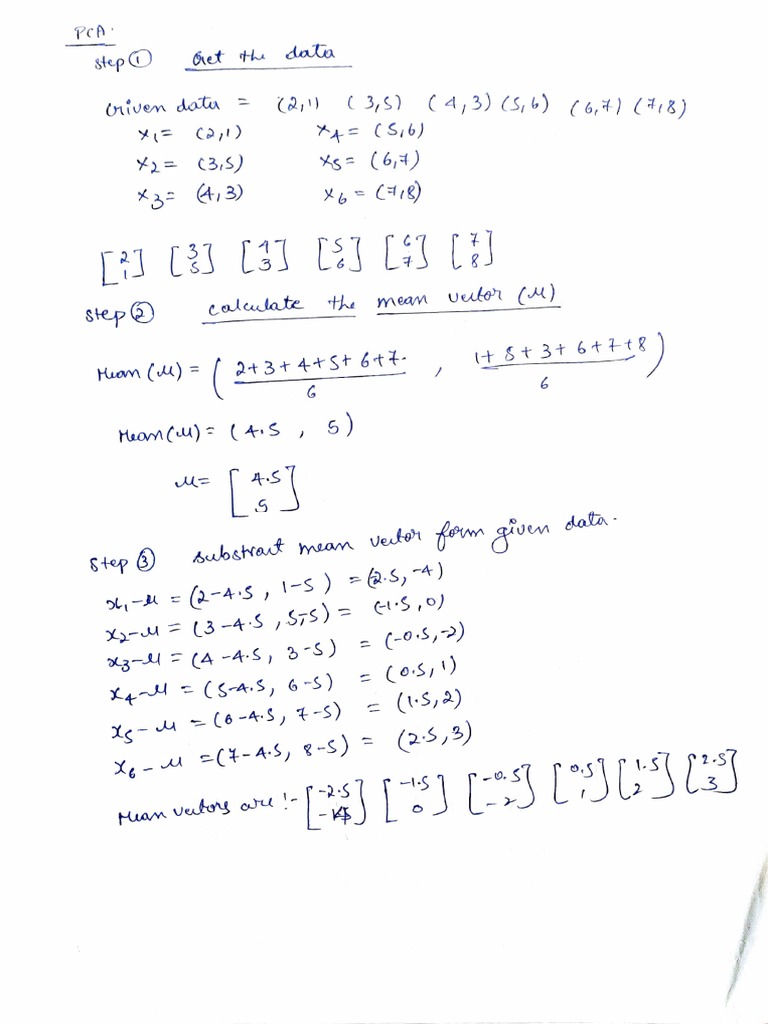 PCA.
Step ① Get the data
Given data = (2,1) (3,5) (4,3) (5,6) (6,7) (7,8)
x1 = (2,1) x4 = (5,6)
x2 = (3,5) x5 = (6,7)
x3 = (4,3) x6 = (7,8)
[2 1] [3 5] [4 3] [5 6] [6 7] [7 8]
Step ② calculate the mean vector (μ)
Mean (μ) = ( 2+3+4+5+6+7. / 6 , 1+5+3+6+7+8 / 6 )
Mean (μ) = (4.5 , 5)
μ = [4.5 5]
Step ③ substract mean vector form given data.
x1-μ = (2-4.5, 1-5) = (2.5, -4)
x2-μ = (3-4.5, 5-5) = (-1.5, 0)
x3-μ = (4-4.5, 3-5) = (-0.5, -2)
x4-μ = (5-4.5, 6-5) = (0.5, 1)
x5-μ = (6-4.5, 7-5) = (1.5, 2)
x6-μ = (7-4.5, 8-5) = (2.5, 3)
Mean vectors are :- [-2.5 -4] [-1.5 0] [-0.5 -2] [0.5 1] [1.5 2] [2.5 3]